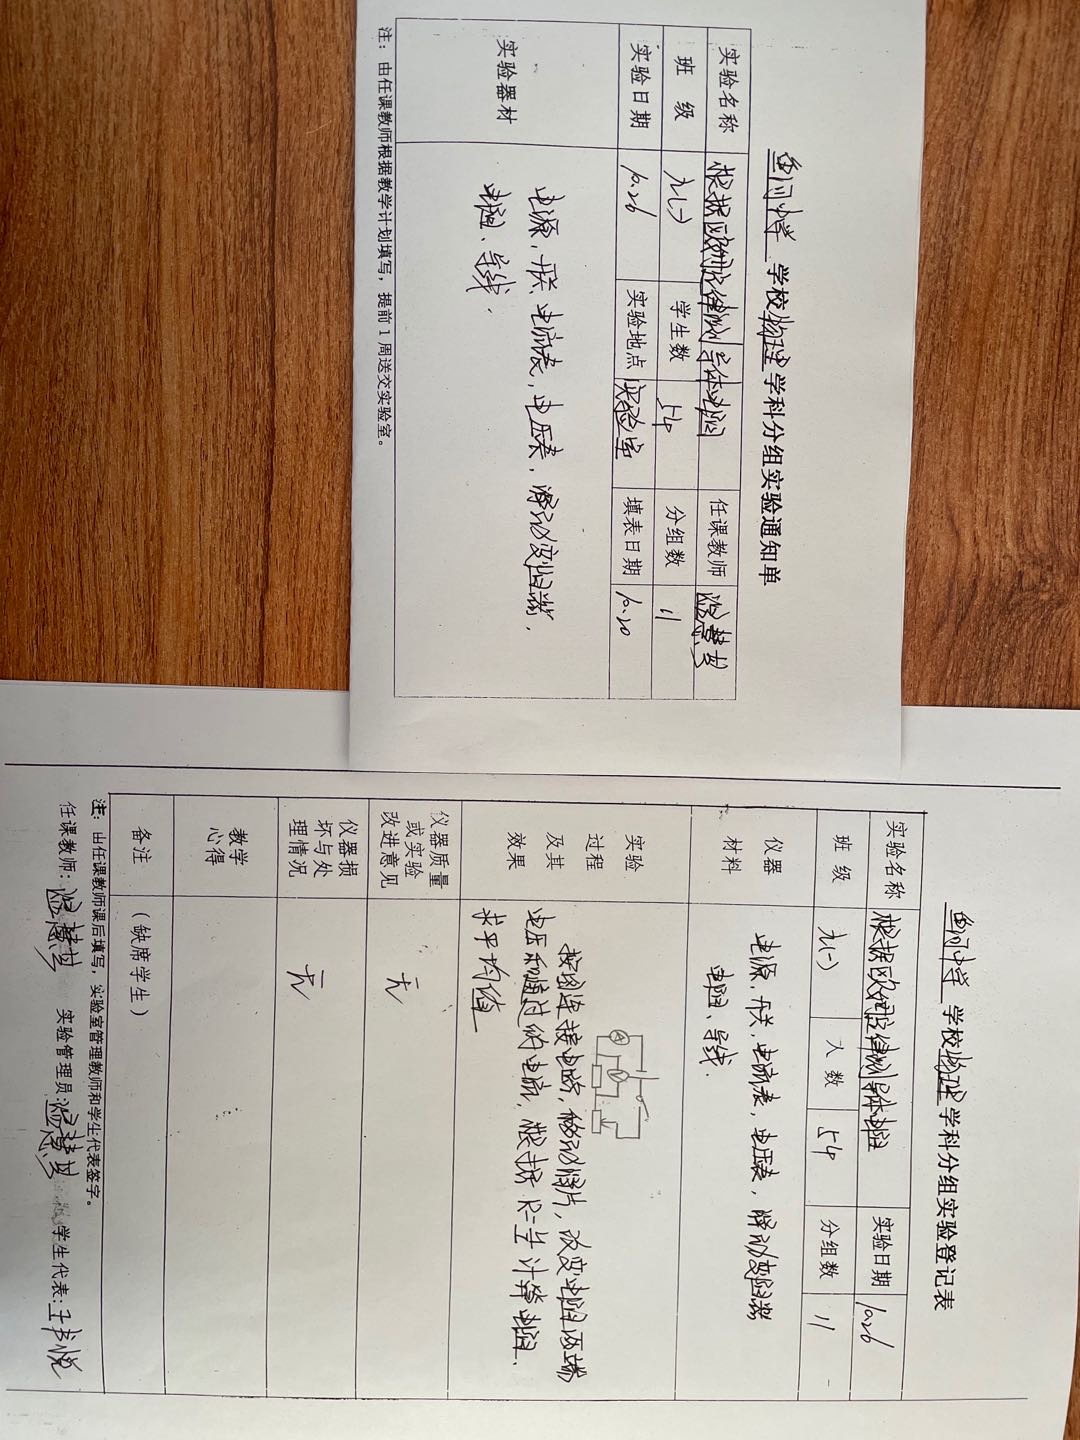 鱼河中学 学校物理学科分组实验通知单
实验名称 根据欧姆定律测导体电阻 任课教师
班 级 九(一) 学生数 54 分组数 11
实验日期 10.26 实验地点 实验室 填表日期 10.20
实验器材 电源、开关、电流表、电压表、滑动变阻器、
电阻、导线、
注：由任课教师根据教学计划填写，提前1周送交实验室。
鱼河中学 学校物理学科分组实验登记表
实验名称 根据欧姆定律测导体电阻 实验日期 10.26
班 级 九(一) 人 数 54 分组数 11
仪器材料 电源、开关、电流表、电压表、滑动变阻器
电阻、导线、
实验过程及其效果
A
V
按图连接电路，移动滑片，改变电阻两端
电压和通过的电流，根据R=U/I计算电阻、
求平均值
仪器质量或实验改进意见 无
仪器损坏与处理情况 无
教学心得
备注 （缺席学生）
注：由任课教师课后填写，实验室管理教师和学生代表签字。
任课教师： 实验管理员： 学生代表：王书悦